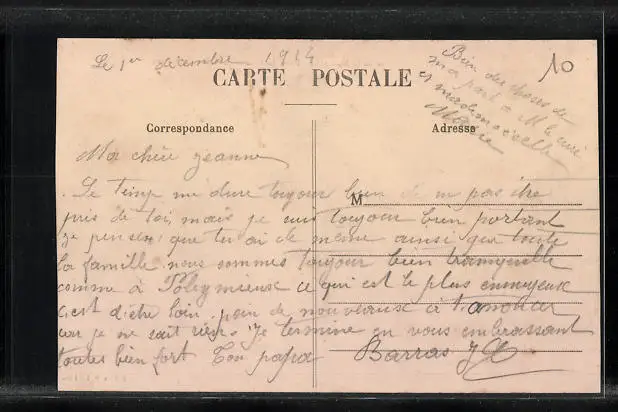 Le 1er décembre 1914
Bien des choses de
ma part a M le curé
et mademoiselle
Marie
10
CARTE POSTALE
Correspondance
Adresse
Ma chère jeanne
Le temp me dure toujour bien de ne pas être
M
près de toi, mais je suis toujour bien portant
je pense que tu ai de même ainsi que toute
la famille nous sommes toujour bien tranquille
comme à Poleymieux ce qui est le plus ennuyeux
c'est d'être loin. poin de nouveaux à t'anoncer
car je ne sait rien. Je termine en vous embrassant
toutes bien fort Ton papa Barras J